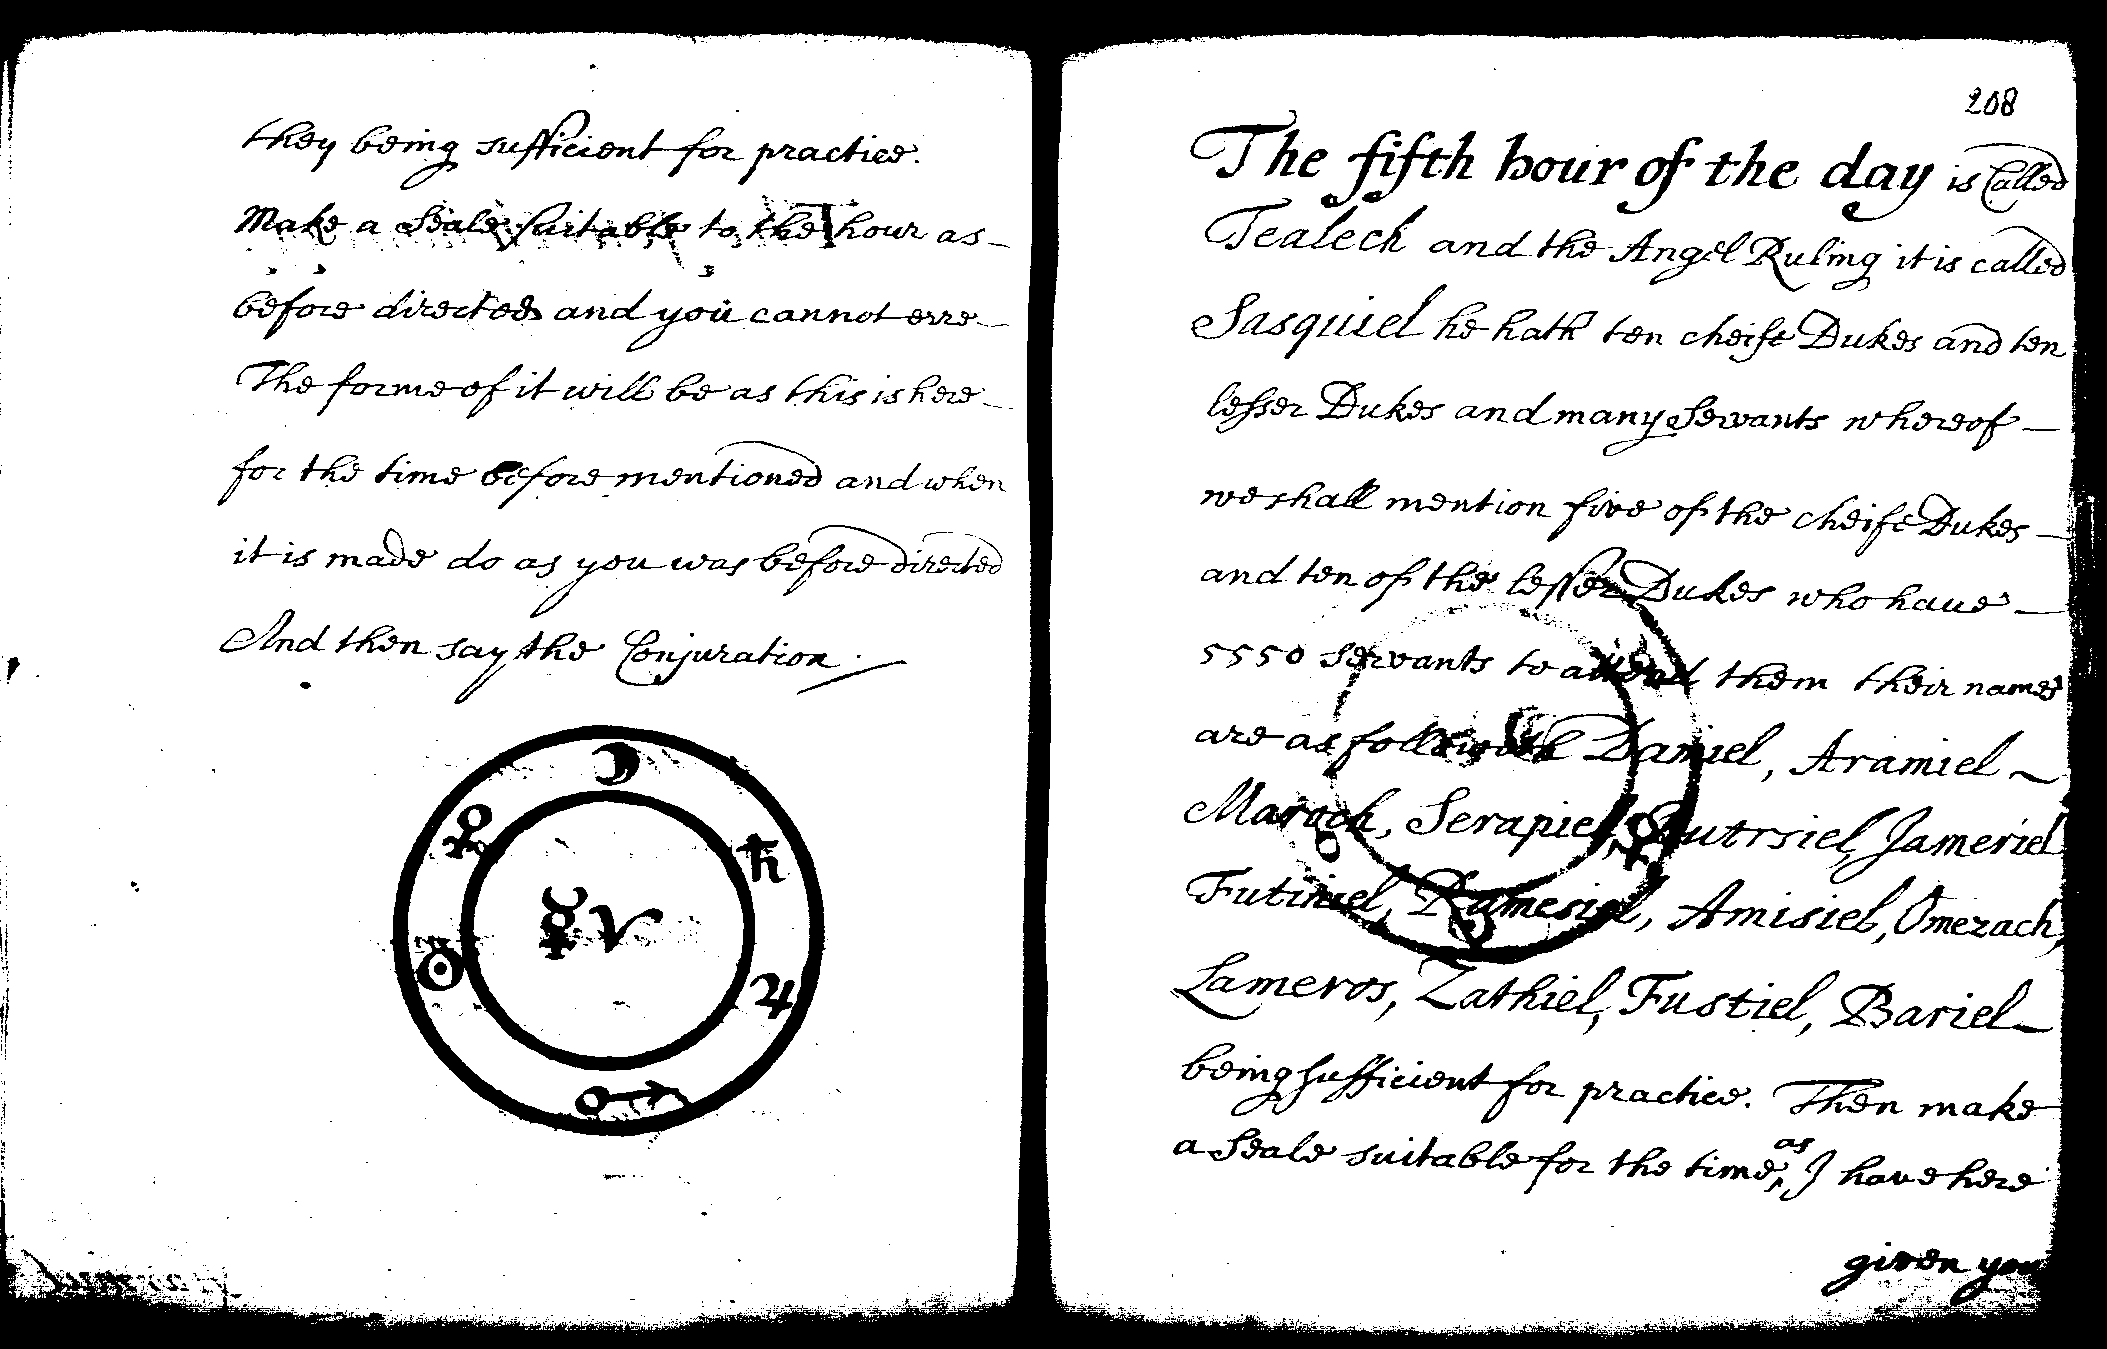 they being sufficient for practice.
Make a Seale suitable to the hour as
before directed and you cannot erre
The forme of it will be as this is here
for the time before mentioned and when
it is made do as you was before directed
And then say the Conjuration
208
The fifth hour of the day is Called
Tealech and the Angel Ruling it is called
Sasquiel he hath ten cheife Dukes and ten
lesser Dukes and many Servants whereof
we shall mention five of the cheife Dukes
and ten of the lesser Dukes who have
5550 servants to attend them their names
are as followeth Damiel, Aramiel
Maroch, Serapiel, Putrsiel, Jameriel
Futiniel, Ramesiel, Amisiel, Omezach,
Lameros, Zathiel, Fustiel, Bariel
being sufficient for practice. Then make
a Seale suitable for the time, as I have here
given you